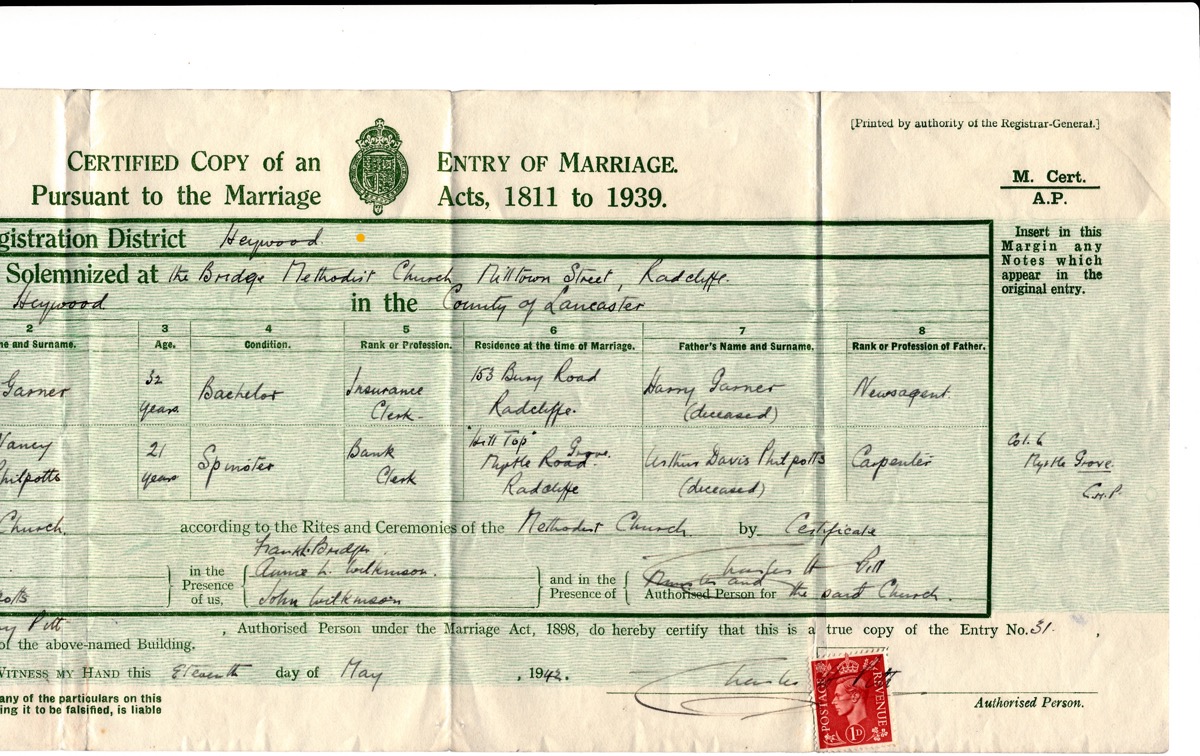 [Printed by authority of the Registrar-General.]
CERTIFIED COPY of an ENTRY OF MARRIAGE.
Pursuant to the Marriage Acts, 1811 to 1939.
M. Cert.
A.P.
gistration District Heywood
Insert in this
Margin any
Notes which
appear in the
original entry.
Solemnized at the Bridge Methodist Church, Milltown Street, Radcliffe.
Heywood in the County of Lancaster
2 3 4 5 6 7 8
me and Surname. Age. Condition. Rank or Profession. Residence at the time of Marriage. Father's Name and Surname. Rank or Profession of Father.
Garner 32 years Bachelor Insurance Clerk 153 Bury Road Radcliffe. Harry Garner (deceased) Newsagent.
Nancy Philpotts 21 years Spinster Bank Clerk "Hill Top" Myrtle Road Grove. Radcliffe Arthur Davis Philpotts (deceased) Carpenter
Col. 6
Myrtle Grove.
C.H.P.
Church. according to the Rites and Ceremonies of the Methodist Church. by Certificate
in the Presence of us, Frank Bridge. Annie L. Wilkinson. John Wilkinson
and in the Presence of Charles H Pitt
Minister and
Authorised Person for the said Church.
otts
ry Pitt , Authorised Person under the Marriage Act, 1898, do hereby certify that this is a true copy of the Entry No. 31. ,
of the above-named Building.
WITNESS MY HAND this Eleventh day of May , 1942.
Charles H Pitt
Authorised Person.
any of the particulars on this
ing it to be falsified, is liable
POSTAGE REVENUE
1D